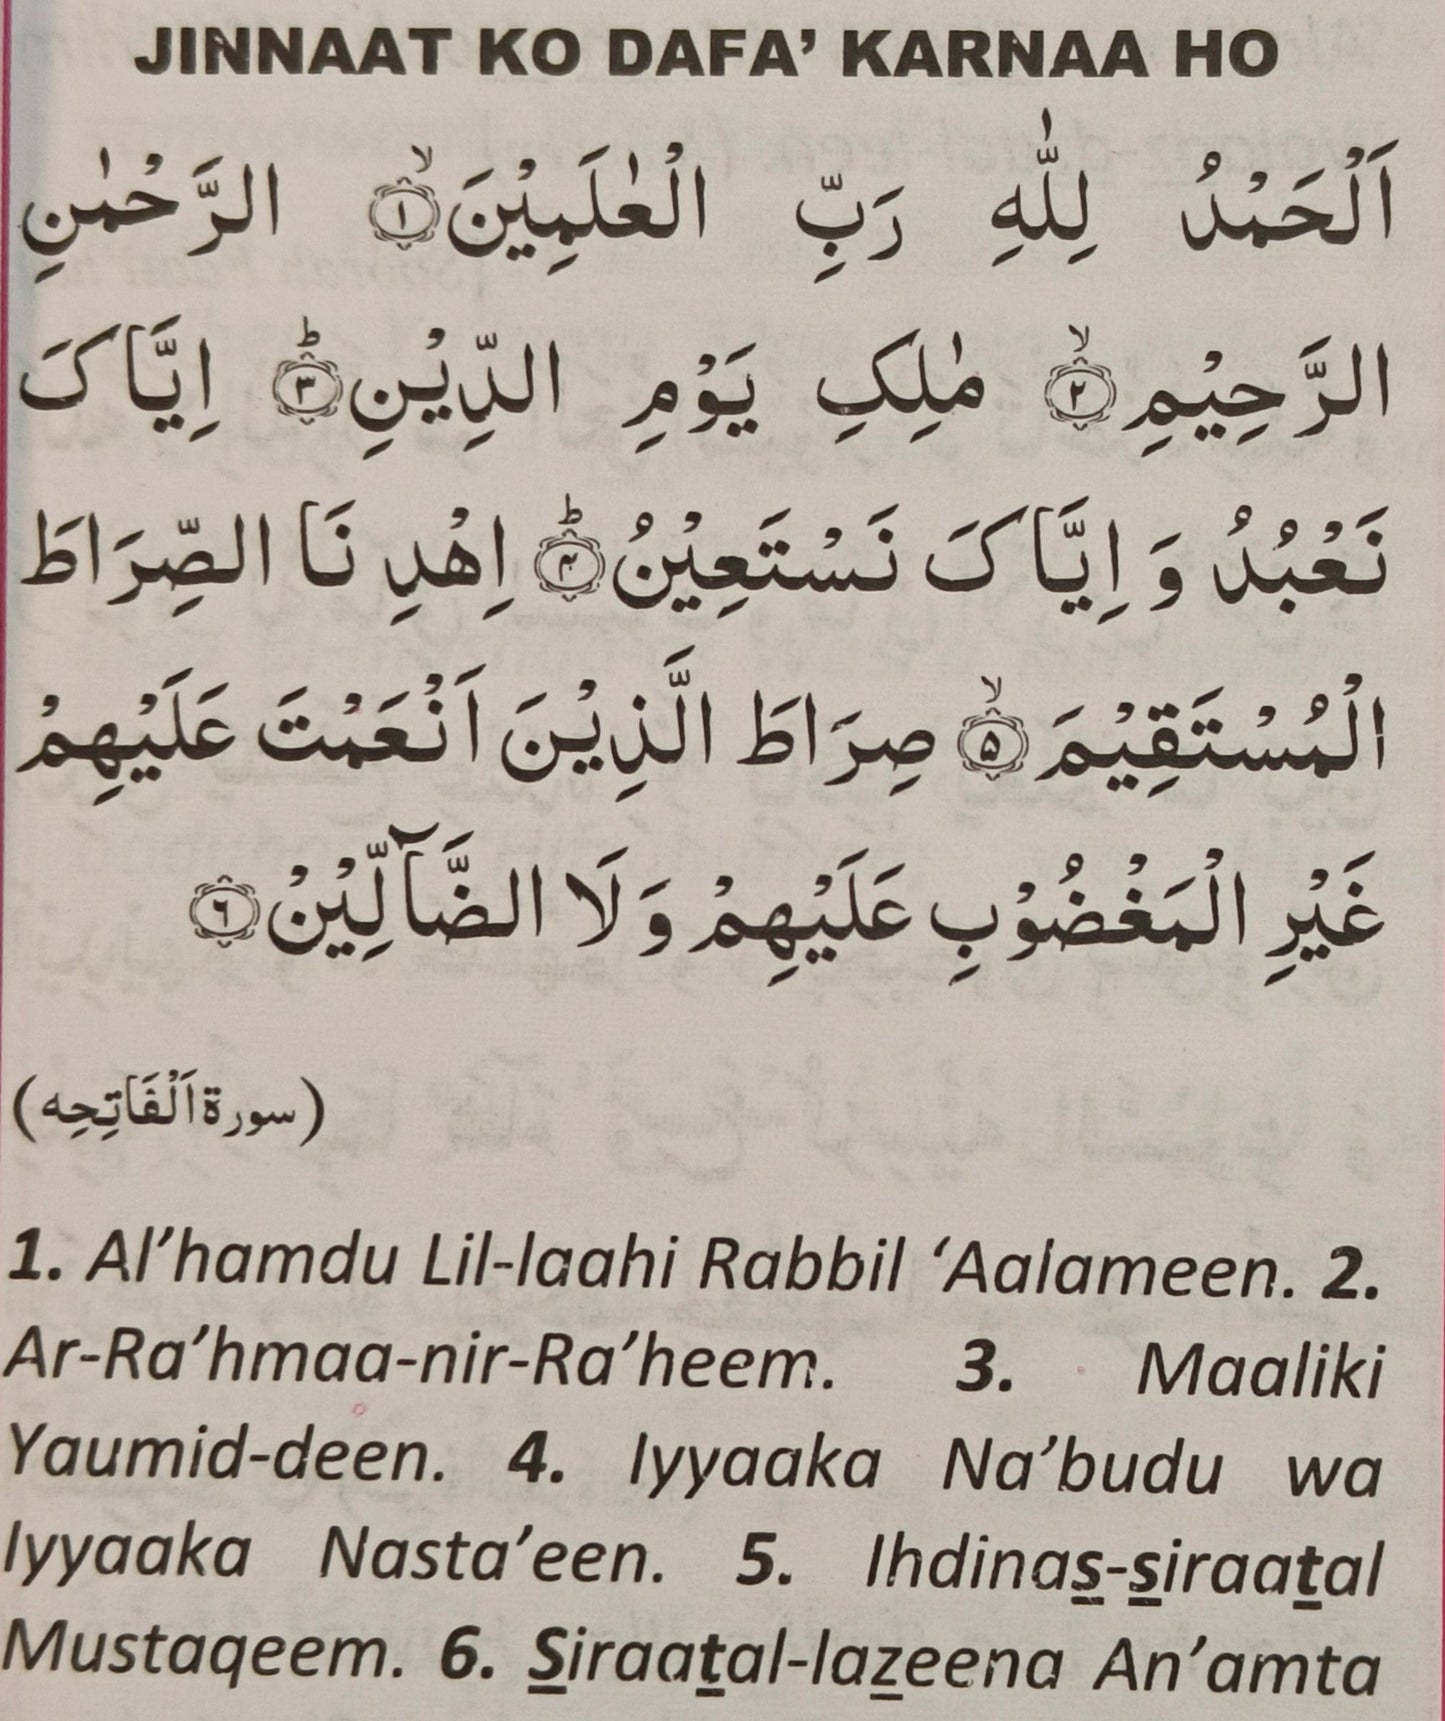 JINNAAT KO DAFA’ KARNAA HO
اَلْحَمْدُ لِلّٰهِ رَبِّ الْعٰلَمِيْنَ ۙ﴿۱﴾ الرَّحْمٰنِ
الرَّحِيْمِ ۙ﴿۲﴾ مٰلِكِ يَوْمِ الدِّيْنِ ؕ﴿۳﴾ اِيَّاكَ
نَعْبُدُ وَ اِيَّاكَ نَسْتَعِيْنُ ؕ﴿۴﴾ اِهْدِ نَا الصِّرَاطَ
الْمُسْتَقِيْمَ ۙ﴿۵﴾ صِرَاطَ الَّذِيْنَ اَنْعَمْتَ عَلَيْهِمْ
غَيْرِ الْمَغْضُوْبِ عَلَيْهِمْ وَلَا الضَّآلِّيْنْ ﴿۶﴾
(سورة اَلْفَاتِحِه)
1. Al’hamdu Lil-laahi Rabbil ‘Aalameen. 2.
Ar-Ra’hmaa-nir-Ra’heem. 3. Maaliki
Yaumid-deen. 4. Iyyaaka Na’budu wa
Iyyaaka Nasta’een. 5. Ihdinas-siraatal
Mustaqeem. 6. Siraatal-lazeena An’amta